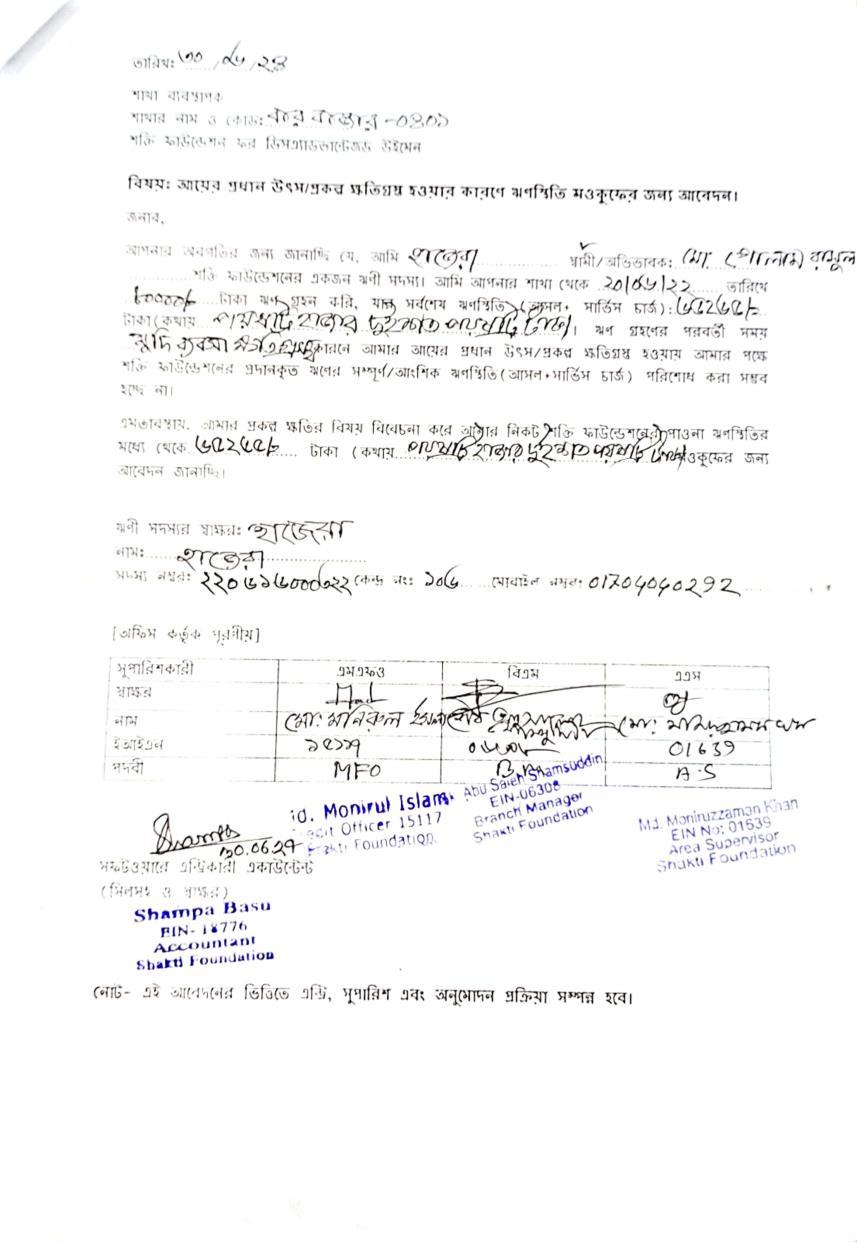 তারিখ: ৩০/০৬/২৪
শাখা ব্যবস্থাপক
শাখার নাম ও কোডঃ -০৪০১
শক্তি ফাউন্ডেশন ফর ডিসএ্যাডভান্টেজড উইমেন
বিষয়: আয়ের প্রধান উৎস/প্রকল্প ক্ষতিগ্রস্ত হওয়ার কারণে ঋণস্থিতি মওকুফের জন্য আবেদন।
জনাব,
আপনার অবগতির জন্য জানাচ্ছি যে, আমি হাজেরা স্বামী/অভিভাবক: মো: গোলাম রসুল
শক্তি ফাউন্ডেশনের একজন ঋণী সদস্য। আমি আপনার শাখা থেকে ২০/০৬/২২ তারিখে
টাকা ঋণ গ্রহন করি, যার সর্বশেষ ঋণস্থিতি (আসল+ সার্ভিস চার্জ):
টাকা (কথায় পয়ষট্টি হাজার দুইশত পয়ষট্টি টাকা)। ঋণ গ্রহণের পরবর্তী সময়
মুদি ব্যবসা ক্ষতিগ্রস্ত কারনে আমার আয়ের প্রধান উৎস/প্রকল্প ক্ষতিগ্রস্ত হওয়ায় আমার পক্ষে
শক্তি ফাউন্ডেশনের প্রদানকৃত ঋণের সম্পূর্ণ/আংশিক ঋণস্থিতি (আসল+সার্ভিস চার্জ) পরিশোধ করা সম্ভব
হচ্ছে না।
এমতাবস্থায়, আমার প্রকল্প ক্ষতির বিষয় বিবেচনা করে আমার নিকট শক্তি ফাউন্ডেশনের পাওনা ঋণস্থিতির
মধ্যে থেকে টাকা (কথায় পয়ষট্টি হাজার দুইশত পয়ষট্টি টাকা) মওকুফের জন্য
আবেদন জানাচ্ছি।
ঋণী সদস্যের স্বাক্ষর: হাজেরা
নাম: হাজেরা
সদস্য নম্বর: ২২০৬১৬০০০৩২২ কেন্দ্র নং: ১০৬ মোবাইল নম্বর: 01704040292
[অফিস কর্তৃক পূরণীয়]
সুপারিশকারী এমএফও বিএম এএস
স্বাক্ষর
নাম মো: মনিরুল ইসলাম
ইআইএন ১৫১১৭ 01639
পদবী MFO B.M A.S
Md. Monirul Islam
Credit Officer 15117
Shakti Foundation
Abu Saleh Shamsuddin
EIN-06308
Branch Manager
Shakti Foundation
Md. Moniruzzaman Khan
EIN No: 01639
Area Supervisor
Shakti Foundation
Shampa
30.06.24
সফটওয়ারে এন্ট্রিকারী একাউন্টেন্ট
(সিলসহ ও স্বাক্ষর)
Shampa Basu
EIN- 18776
Accountant
Shakti Foundation
নোট- এই আবেদনের ভিত্তিতে এন্ট্রি, সুপারিশ এবং অনুমোদন প্রক্রিয়া সম্পন্ন হবে।